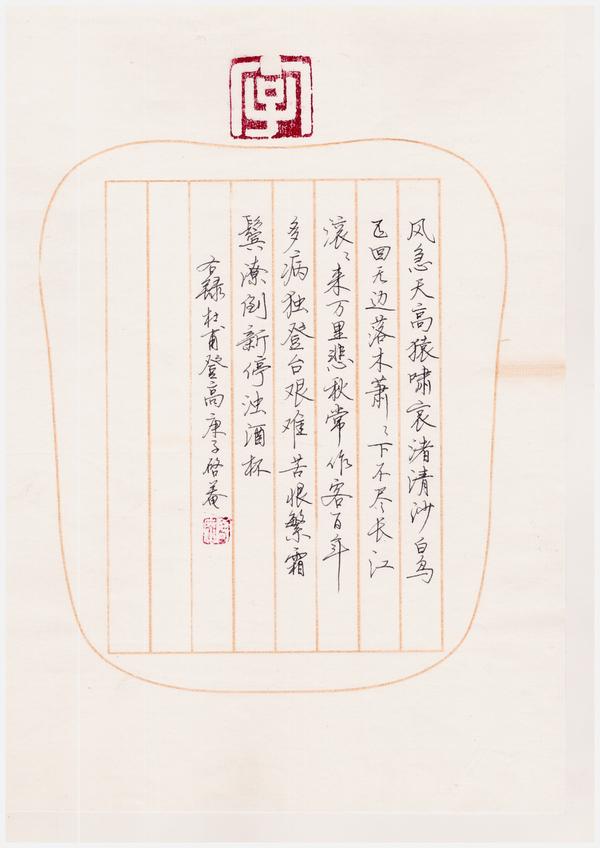 风急天高猿啸哀渚清沙白鸟
飞回无边落木萧〻下不尽长江
滚〻来万里悲秋常作客百年
多病独登台艰难苦恨繁霜
鬓潦倒新停浊酒杯
右録杜甫登高庚子菴